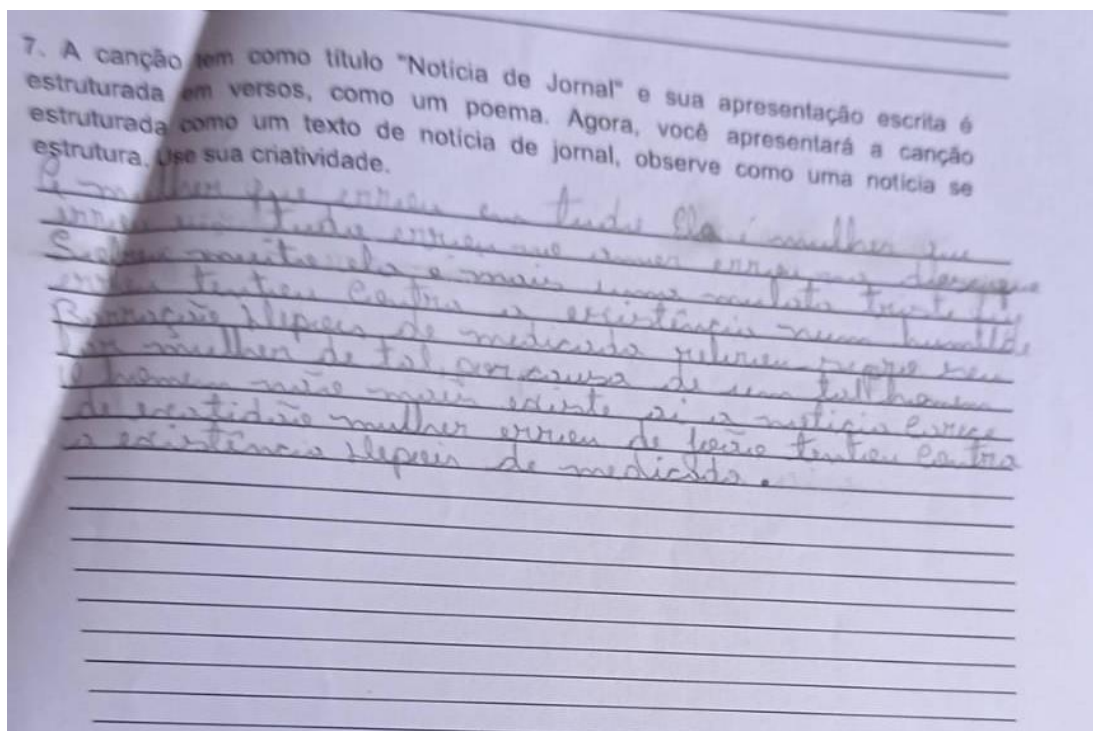 7. A canção tem como título "Notícia de Jornal" e sua apresentação escrita é
estruturada em versos, como um poema. Agora, você apresentará a canção
estruturada como um texto de notícia de jornal, observe como uma notícia se
estrutura. Use sua criatividade.
mulher que errou em tudo Ela é mulher que
errou em tudo errou no amor errou no
muito ela e mais uma mulata triste que
errou tentou contra a existência num humilde
Barracão depois de medicada retirou
mulher de tal por causa de um tal homem
homem não mais existe ai a noticia carece
de exatidão mulher errou de tentou contra
a existência depois de medicada.